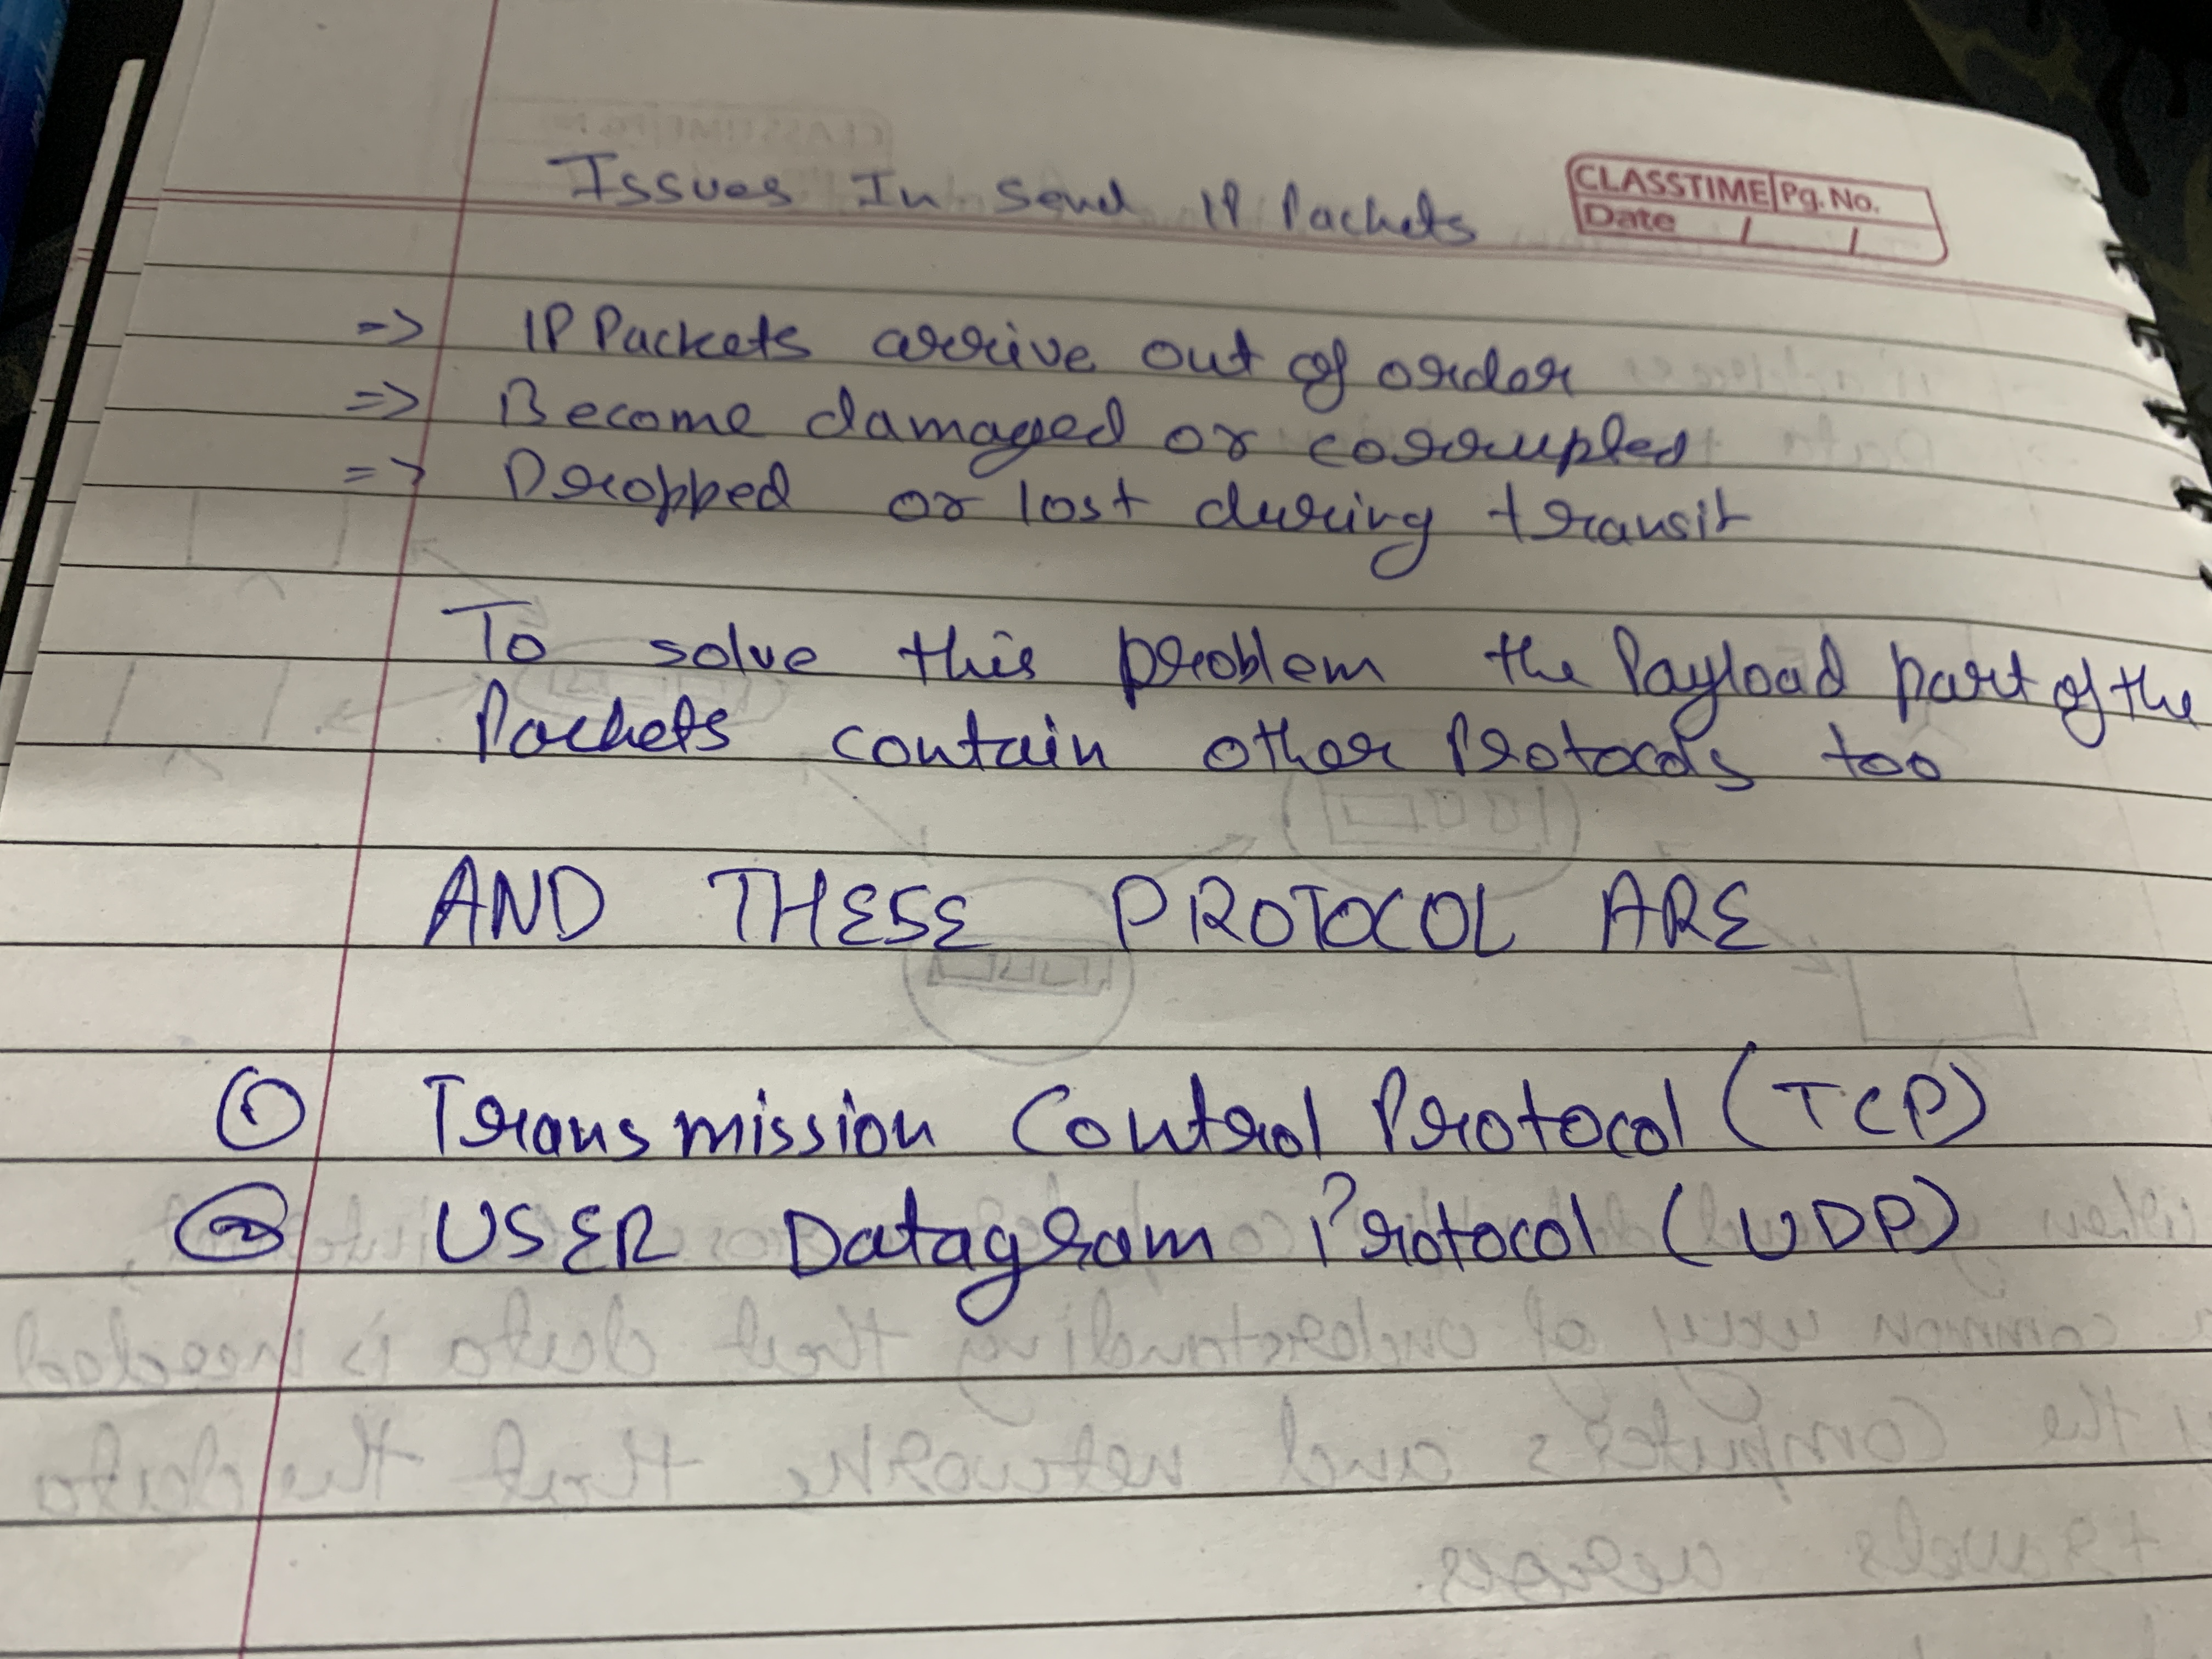 CLASSTIME Pg. No.
Date / /
Issues In send IP Packets
=> IP Packets arrive out of order
=> Become damaged or corrupted
=> Dropped or lost during transit
To solve this problem the Payload part of the
Packets contain other Protocols too
AND THESE PROTOCOL ARE
① Transmission Control Protocol (TCP)
② USER Datagram Protocol (UDP)